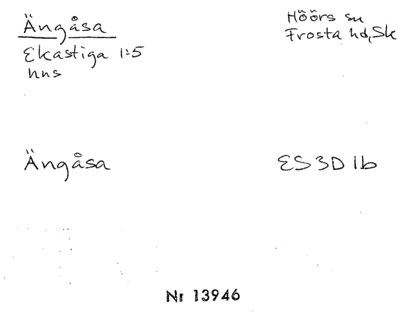 Ängåsa
Ekastiga 1:5
hns
Höörs sn
Frosta hd, Sk
Ängåsa
ES 3D 1b
Nr 13946